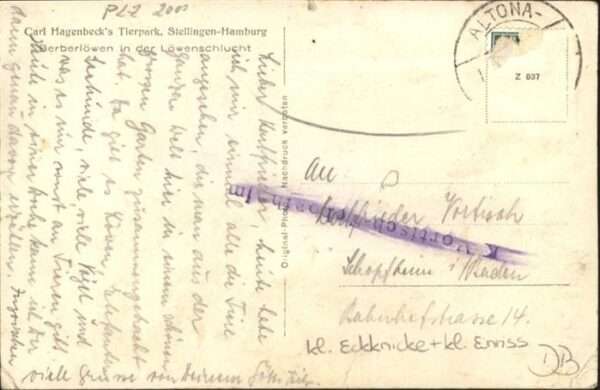 PLZ 2000
Carl Hagenbeck's Tierpark, Stellingen-Hamburg
Berberlöwen in der Löwenschlucht
ALTONA-
Z 037
Lieber Karlfrieder, heute habe
ich mir einmal alle die Tiere
angesehen, die man aus der
ganzen Welt hier in einem schönen
grossen Garten zusammengebracht
hat. Da gibt es Löwen, Elefanten,
Seehunde, viele, viele Vögel und
was es nur sonst an Tieren gibt.
kann ich Dir
dann genau davon erzählen. Inzwischen
viele Grüsse von Deinem
Original Photo. Nachdruck verboten
An
Karlfrieder Vortisch
K. Vortisch
Schopfheim i/Baden
Bahnhofstrasse 14.
kl. Eckknicke + kl. Einriss
DB